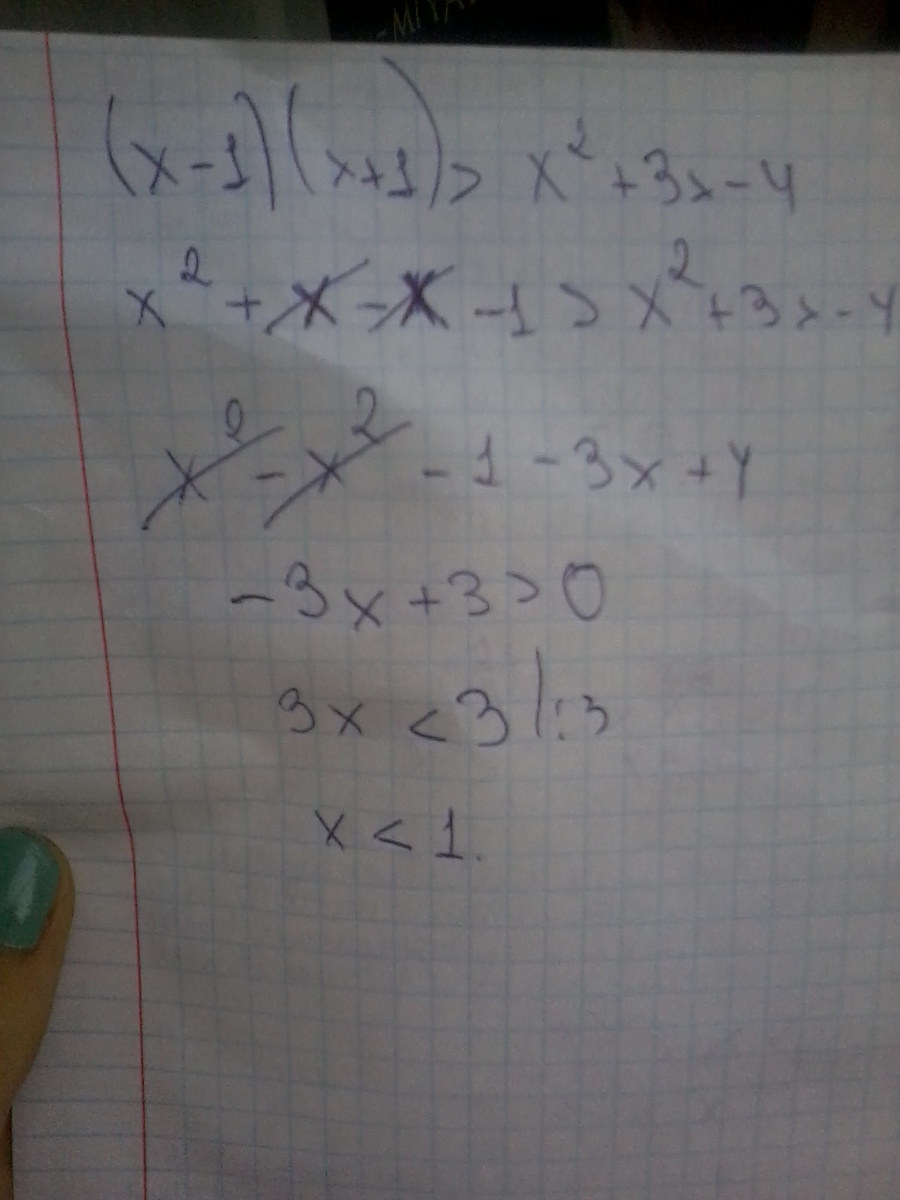 -MIYA
(x-1)(x+1)> x²+3x-4
x²+x-x-1>x²+3x-4
x²-x²-1-3x+4
-3x+3>0
3x<3|:3
x<1.